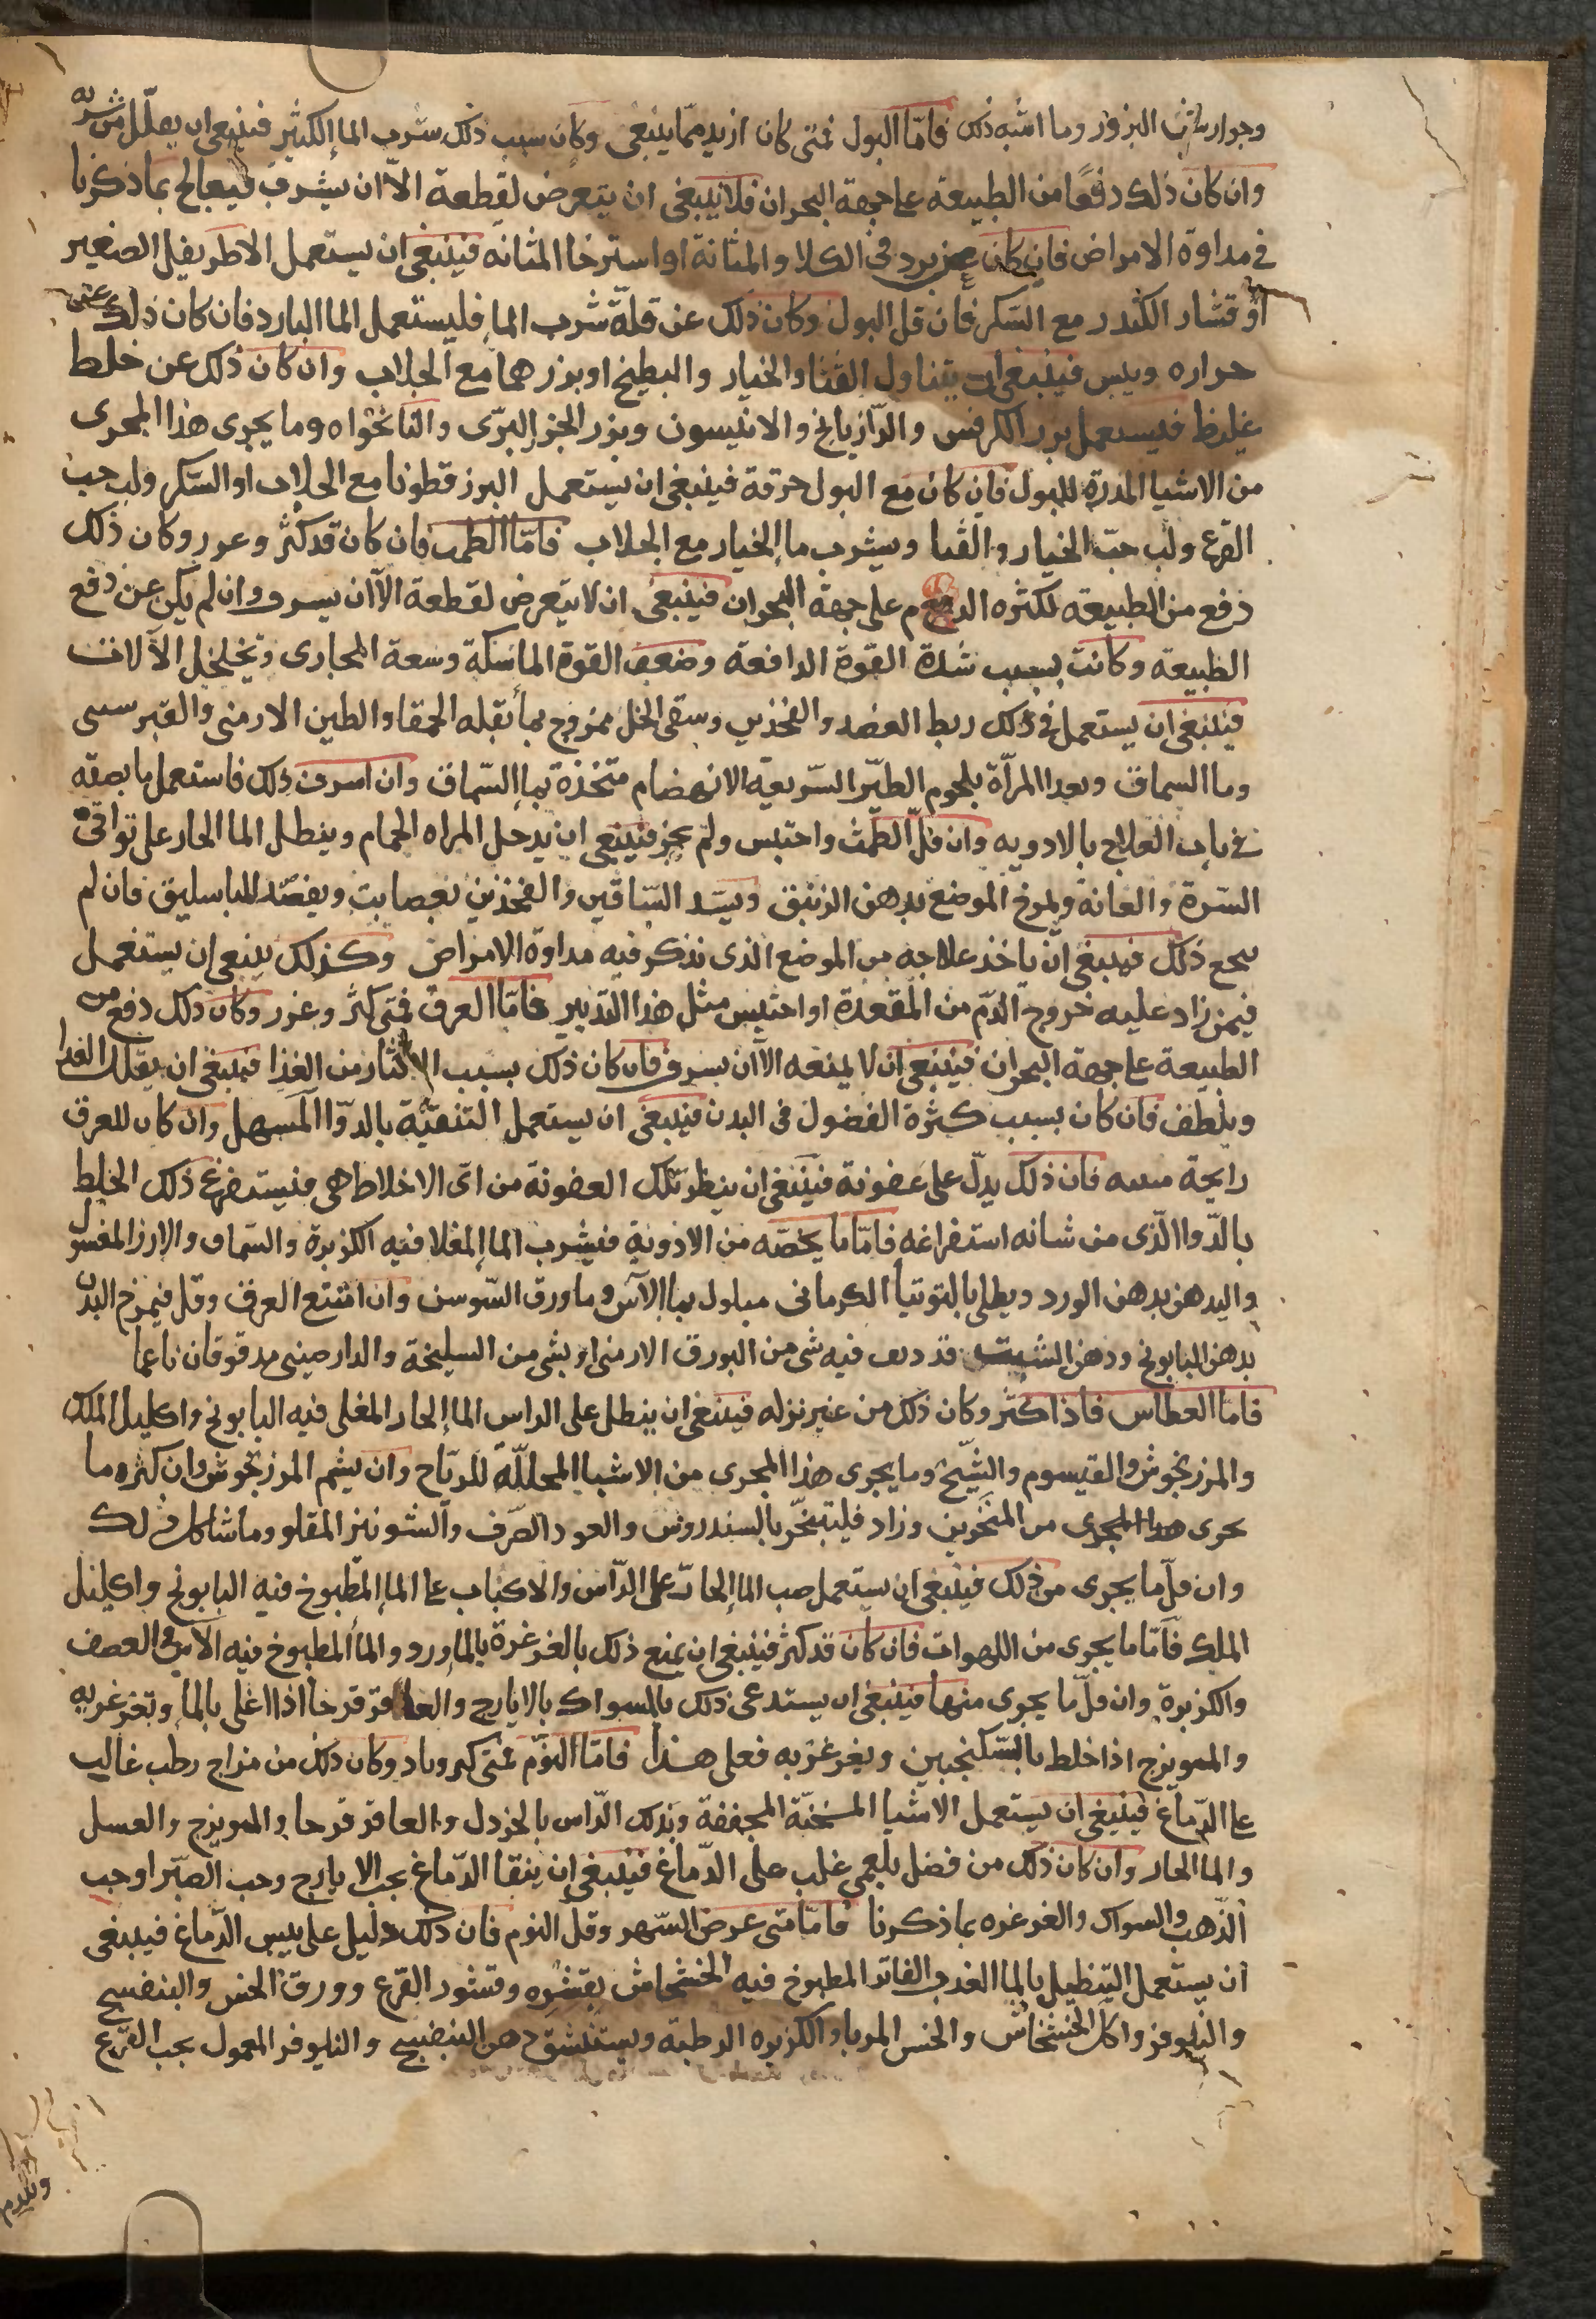 وجوارشن البزور وما اشبه ذلك فامّا البول فمتى كان ازيد مما ينبغى وكان سبب ذلك شرب الماء الكثير فينبغى ان يقلّل من شربه
وان كان ذلك دفعًا من الطبيعه على جهة البحران فلا ينبغى ان يتعرض لقطعة الاّ ان يشرف فيعالج بما ذكرنا
فى مداوة الامراض فان كان عن برد فى الكلا والمثانة او استرخا المثانه فينبغى ان يستعمل الاطريفل الصغير
او قشار الكندر مع السّكر فان قل البول وكان ذلك عن قلّة شرب الماء فليستعمل الما البارد فان كان ذلك عن
حراره ويبس فينبغى ان يتناول القثا والخيار والبطيخ او بزرهما مع الجلاب وان كان ذلك عن خلط
غليظ فيستعمل بزر الكرفس والرّازيانج والانيسون وبزر الجزر البرّى والنانخواه وما يجرى هذا المجرى
من الاشيا المدرة للبول فان كان مع البول حرقة فينبغى ان يستعمل البزر قطونا مع الجلاب او السّكر ولب حب
القرع ولب حبّ الخيار والقثا ويشرب ماء الخيار مع الجلاب فامّا الطمث فان كان قد كثر وغزر وكان ذلك
دفع من الطبيعه لكثره الدم على جهة البحران فينبغى ان لا يتعرض لقطعة الاّ ان يسرف وان لم يكن عن دفع
الطبيعه وكانت بسبب شدة القوة الدافعة وضعف القوة الماسكة وسعة المجارى وتخلخل الآلات
فينبغى ان يستعمل فى ذلك ربط العضد والفخذين وسقى الخل ممزوج بماء بقله الحمقا والطين الارمنى والقبرسى
وما السماق وبعد المرآة بلحوم الطيّر السّريعة الانهضام متخذة بماء السّماق وان اسرف ذلك فاستعمل ما بصفه
فى باب العلاج بالادويه وان قلّ الطمث واحتبس ولم يجز فينبغى ان يدخل المراه الحمام وينطل الما الحار على تواقى
السّرة والعانة ويمرخ الموضع بدهن الزنبق ويشد السّاقين والفخذين بعصابت ويفصد الباسليق فان لم
ينجع ذلك فينبغى ان ياخذ علاجه من الموضع الذى نذكر فيه مداوة الامراض وكذلك ينبغى ان يستعمل
فيمن زاد عليه خروج الدّم من المقعدة او احتبس مثل هذا التدبير فامّا العرق فمتى كثر وغزر وكان ذلك دفع من
الطبيعة على جهة البحران فينبغى ان لا يمنعه الاّ ان يسرف فان كان ذلك بسبب الاكثار من الغذا فينبغى ان يقلل الغذا
ويلطف فان كان بسبب كثرة الفضول فى البدن فينبغى ان يستعمل التنقيّة بالدوّا المسهل وان كان للعرق
رايحة منتنه فان ذلك يدلّ على عفونة فينبغى ان ينظر تلك العفونة من اىّ الاخلاط هى فيستفرغ ذلك الخلط
بالدّوا الّذى من شانه استفراغه فامّا ما يخصّه من الادوية فيشرب الماء المغلا فيه الكزبرة والسّماق والارز المغسول
واليدهن بدهن الورد ويطلى بالتوتيا الكرمانى مبلول بماء الآس وما ورق السّوسن وان امتنع العرق وقل فيمرخ البدن
بدهن البابونج ودهن الشبت قد ديف فيه شى من البورق الارمنى او بشى من السليخة والدارصينى مدقوقان ناعما
فامّا العطاس فاذا كثر وكان ذلك من غير نزله فينبغى ان ينطل على الراس الماء الحار المغلى فيه البابونج واكليل الملك
والمرزنجوش والقيسوم والشّيح وما يجرى هذا المجرى من الاشيا المحللّة للريّاح وان يشم المرزنجوش وان كثره ما
يجرى هذا المجرى من المنخرين وزاد فليتبخّر بالسندروس والعود الصّرف والشونيز المقلو وما شاكل ذلك
وان قلّ ما يجرى من ذلك فينبغى ان يستعمل صب الماء الحارّ على الرّاس والاكباب على الماء المطبوخ فيه البابونج واكليل
الملك فامّا ما يجرى من اللهوات فان كان قد كثر فينبغى ان يمنع ذلك بالغرغرة بالماورد والماء المطبوخ فيه الآس والعصف
والكزبرة وان قلّ ما يجرى منها فينبغى ان يستدعى ذلك بالسواك بالايارج والعاقرقرحا اذا اغلى بالماء وتغرغر به
والمميويزج اذا خلط بالسّكنجبين ويغرغر به فعلى هذا فامّا النّوم فمتى كثر وزاد وكان ذلك من مزاج رطب غالب
على الدّماغ فينبغى ان يستعمل الاشيا المسخنّة المجففة ويدلك الرّاس بالخردل والعاقرقرحا والمميويزج والعسل
والما الحار وان كان ذلك من فضل بلغمى غلب على الدّماغ فينبغى ان ينقا الدّماغ بحب الايارج وحب الصبّر او حب
الذّهب والسواك والغرغره بما ذكرنا فامّا متى عرض السّهر وقلّ النوم فان ذلك دليل على يبس الدّماغ فينبغى
ان يستعمل التنطيل بالماء العذب الفاتر المطبوخ فيه الخشخاش بقشره وقشور القرع وورق الخس والبنفسج
والنيلوفر واكل الخشخاش والخس المربا والكزبره الرطبه ويستنشق دهن البنفسج والنيلوفر المعمول بحب القرع